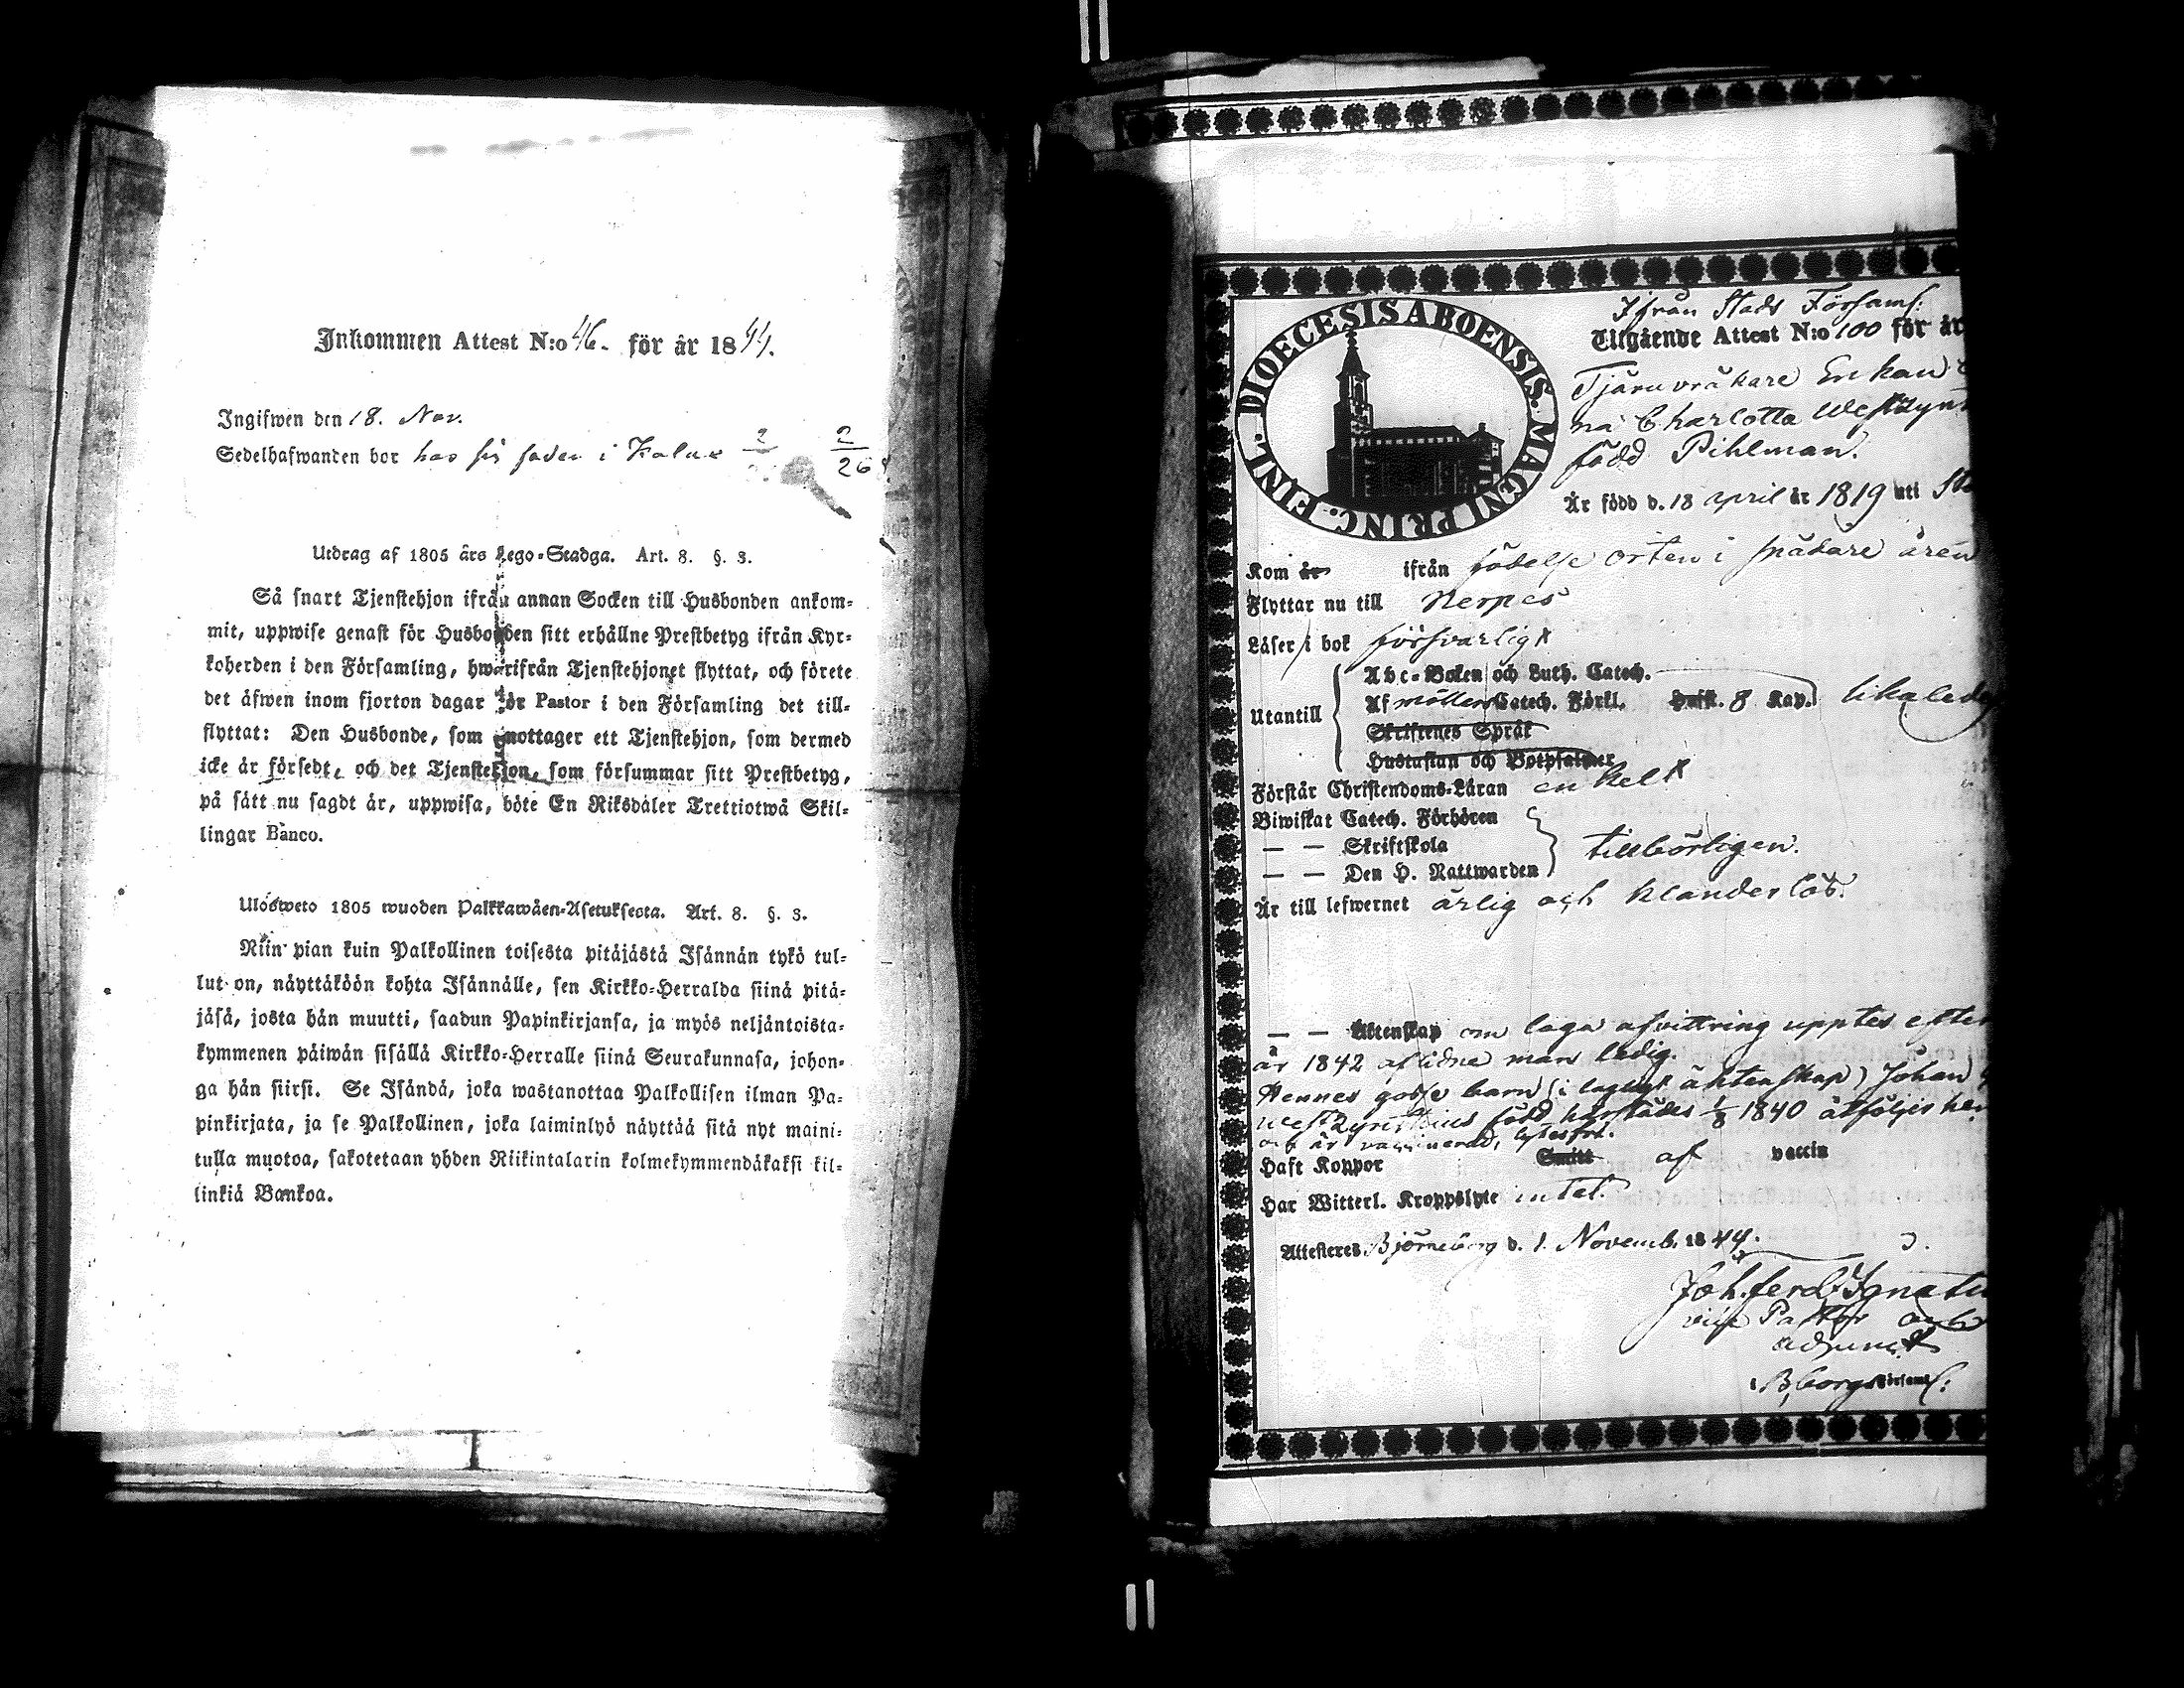 Inkommen Attest N:o 46. för år 1844.
Ingifwen den 18. Nov.
Sedelhafwanden bor hos sin fader i Kalax 2 2/26
Utdrag af 1805 års Lego-Stadga. Art. 8. §. 3.
Så snart Tjenstehjon ifrån annan Socken till Husbonden ankom-
mit, uppwise genast för Husbonden sitt erhållne Prestbetyg ifrån Kyr-
koherden i den Församling, hwarifrån Tjenstehjonet flyttat, och förete
det äfwen inom fjorton dagar för Pastor i den Församling det till-
flyttat: Den Husbonde, som emottager ett Tjenstehjon, som dermed
icke är försedt, och det Tjenstehjon, som försummar sitt Prestbetyg,
på sätt nu sagdt är, uppwisa, böte En Riksdaler Trettiotwå Skil-
lingar Banco.
Ulösweto 1805 wuoden Palkkawäen-Asetuksesta. Art. 8. §. 3.
Niin pian kuin Palkollinen toisesta pitäjästä Isännän tykö tul-
lut on, näyttäköön kohta Isännälle, sen Kirkko-Herralda siinä pitä-
jäsä, josta hän muutti, saadun Papinkirjansa, ja myös neljäntoista-
kymmenen päiwän sisällä Kirkko-Herralle siinä Seurakunnasa, johon-
ga hän siirsi. Se Isändä, joka wastanottaa Palkollisen ilman Pa-
pinkirjata, ja se Palkollinen, joka laiminlyö näyttää sitä nyt maini-
tulla muotoa, sakotetaan yhden Riikintalarin kolmekymmendäkaksi kil-
linkiä Bankoa.
DIOECESIS ABOENSIS. MAGNI PRINC. FINL.
Ifrån Stads Församl:
Utgående Attest N:o 100 för år
Tjäruvräkare Enkan
na Charlotta Westzyn
född Pihlman.
Är född d. 18 april år 1819 uti
Kom år ifrån födelse orten i spädare åren
Flyttar nu till Nerpes
Läser i bok försvarligt
Utantill
Abc-Boken och Luth. Catech.
Af möllers Catech. Förkl. 8 Kap. likaledes
Skriftenes Språk
Hustaflan och Botpsalmer
Förstår Christendoms-Läran enkelt
Biwistat Catech. Förhören
— — Skriftskola tillbörligen.
— — Den H. Nattwarden
Är till lefwernet ärlig och klanderlös.
— — Äktenskap om laga afvittring upptes efter
år 1842 aflidne man ledig.
Hennes gosse barn (i lagligt äktenskap) Johan
född härstädes 1/8 1840 åtföljer hen
och är vaccinerad, lytesfri.
Haft Koppor Smitt af vaccin
Har Witterl. Kroppslyte intet.
Attesteres Björneborg d. 1. Novemb. 1844.
Joh. Ferd. Ignatiu
vice Pastor
adjunct
i B,borgs Församl: